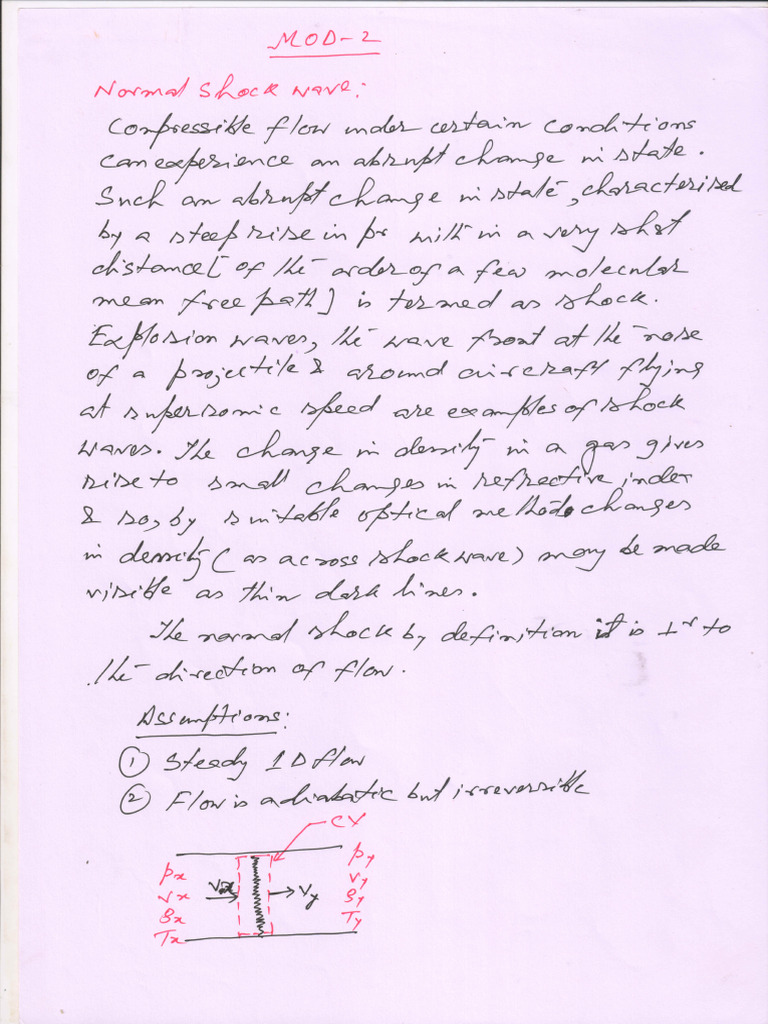 MOD-2
Normal Shock wave:
Compressible flow under certain conditions
can experience an abrupt change in state.
Such an abrupt change in state, characterised
by a steep rise in pr within a very short
distance [ of the order of a few molecular
mean free path] is termed as shock.
Explosion waves, the wave front at the nose
of a projectile & around aircraft flying
at supersonic speed are examples of shock
waves. The change in density in a gas gives
rise to small changes in refractive index
& so, by suitable optical methods changes
in density ( as across shock wave) may be made
visible as thin dark lines.
The normal shock by definition it is ⊥r to
the direction of flow.
Assumptions:
① Steady 1D flow
② Flow is adiabatic but irreversible
CV
px
Vx
ρx
Tx
Vx
Vy
py
Vy
ρy
Ty